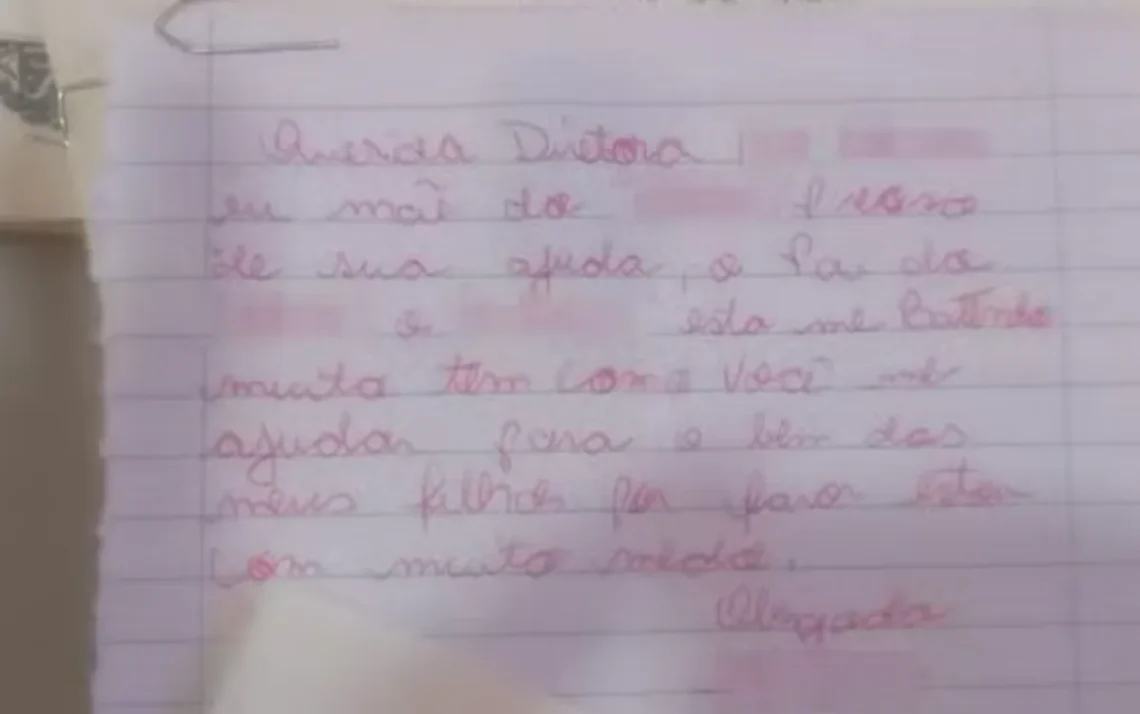 Querida Diretora
eu mai do preciso
de sua ajuda, o pai do
e esta me Battendo
muito tem como você me
ajudar para o bem dos
meus filhos por favor estou
com muito medo.
Obrigada